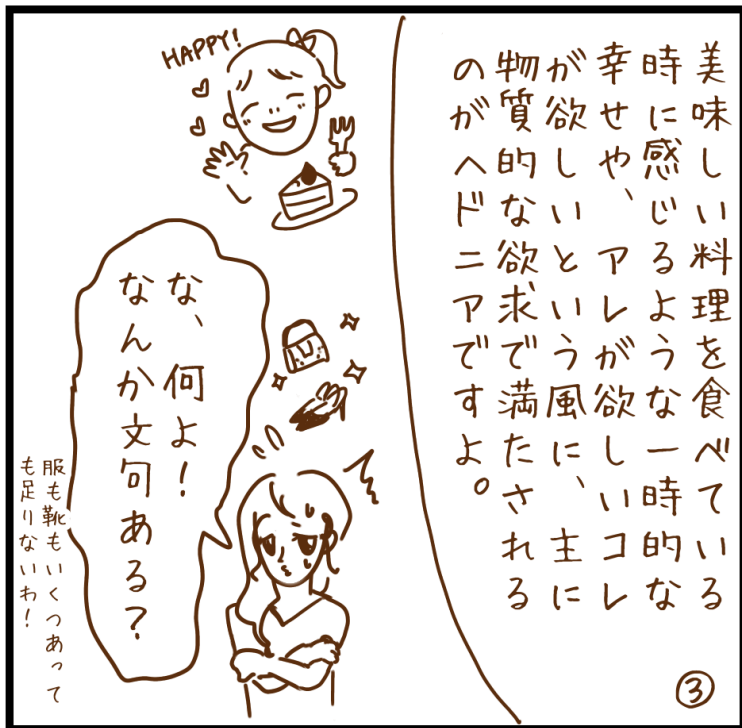 美味しい料理を食べている
時に感じるような一時的な
幸せや、アレが欲しいコレ
が欲しいという風に、主に
物質的な欲求で満たされる
のがヘドニアですよ。
HAPPY!
な、何よ!
なんか文句ある?
服も靴もいくつあって
も足りないわ!
③